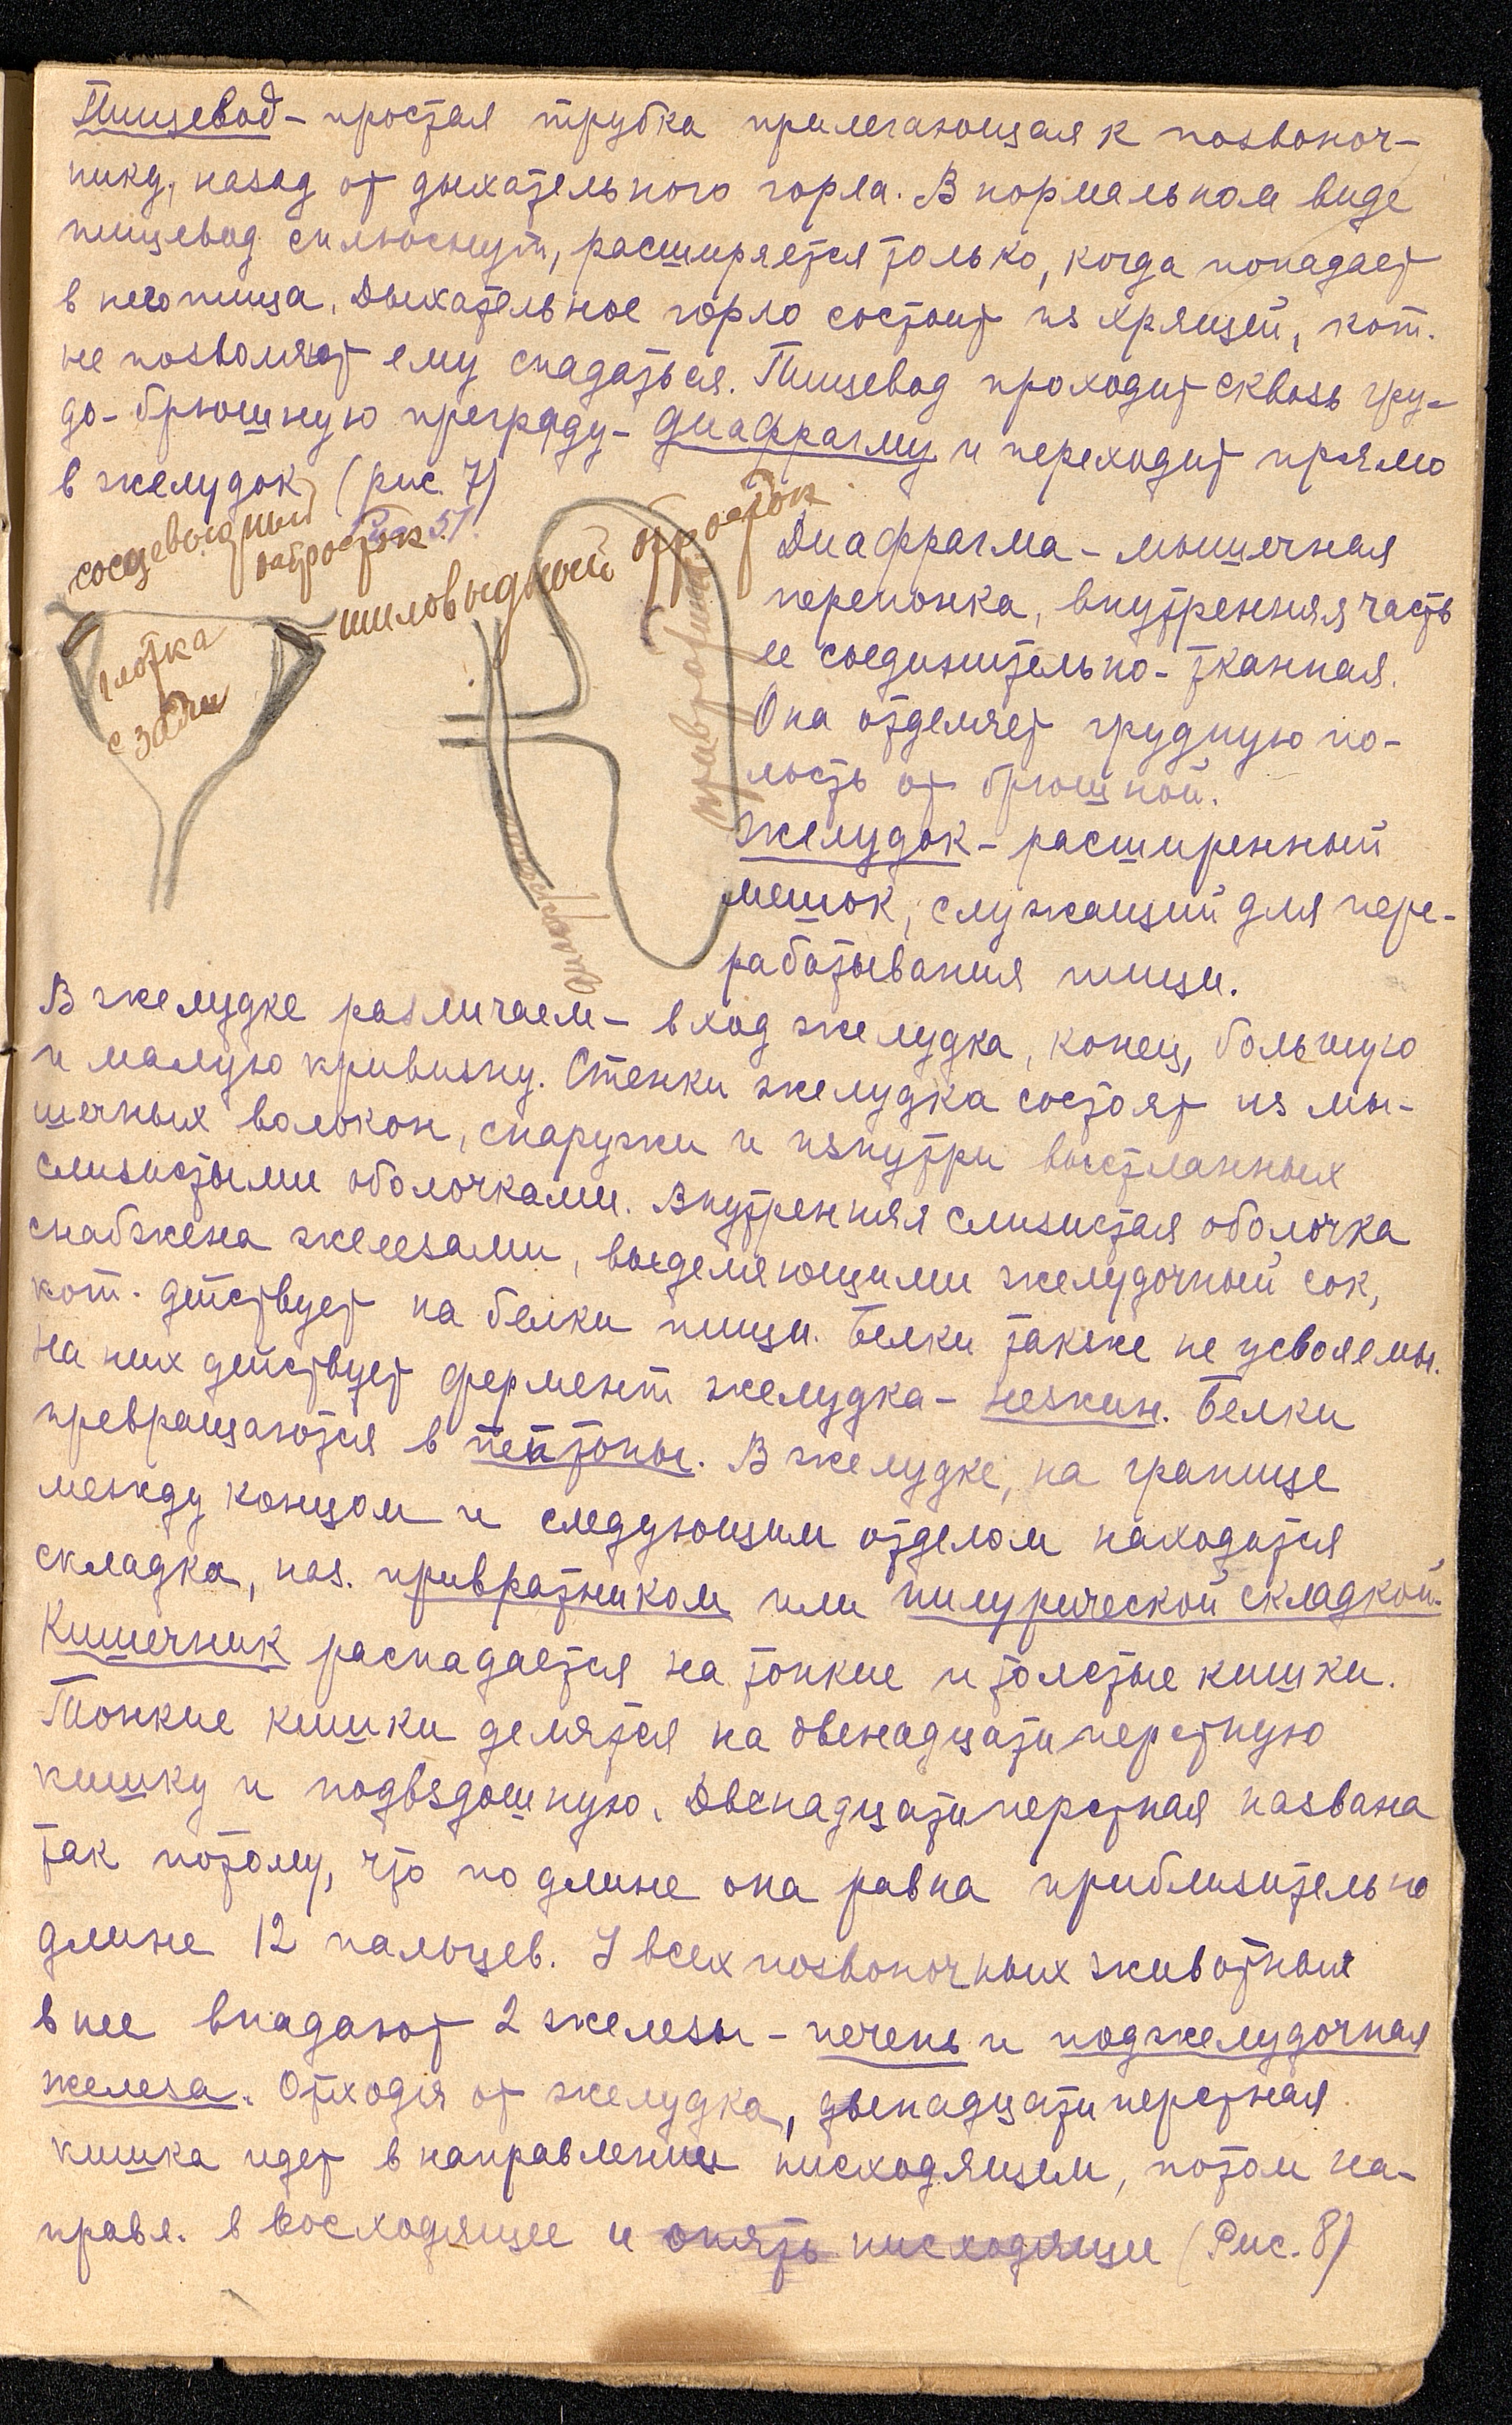 Пищевод - простая трубка прилегающая к позвоноч-
нику, назад от дыхательного горла. В нормальном виде
пищевод сплюснут, расширяется только, когда попадает
в него пища. Дыхательное горло состоит из хрящей, кот.
не позволяют ему спадаться. Пищевод проходит сквозь гру-
до-брюшную преграду - диафрагму и переходит прямо
в желудок (рис. 7)
сосцевидный
отросток.
шиловидный отросток
глотка
сзади
привратник
диафрагма
Диафрагма - мышечная
перепонка, внутренняя часть
ее соединительно-тканная.
Она отделяет грудную по-
лость от брюшной.
Желудок - расширенный
мешок, служащий для пере-
рабатывания пищи.
В желудке различаем - вход желудка, конец, большую
и малую кривизну. Стенки желудка состоят из мы-
шечных волокон, снаружи и изнутри выстланных
слизистыми оболочками. Внутренняя слизистая оболочка
снабжена железами, выделяющими желудочный сок,
кот. действует на белки пищи. Белки также не усвояемы.
На них действует фермент желудка - пепсин. Белки
превращаются в пептоны. В желудке, на границе
между концом и следующим отделом находится
складка, наз. привратником или пилурической складкой.
Кишечник распадается на тонкие и толстые кишки.
Тонкие кишки делятся на двенадцатиперстную
кишку и подвздошную. Двенадцатиперстная названа
так потому, что по длине она равна приблизительно
длине 12 пальцев. У всех позвоночных животных
в нее впадают 2 железы - печень и поджелудочная
железа. Отходя от желудка, двенадцатиперстная
кишка идет в направлении нисходящем, потом на-
правл. в восходящее и опять нисходящее (Рис. 8)